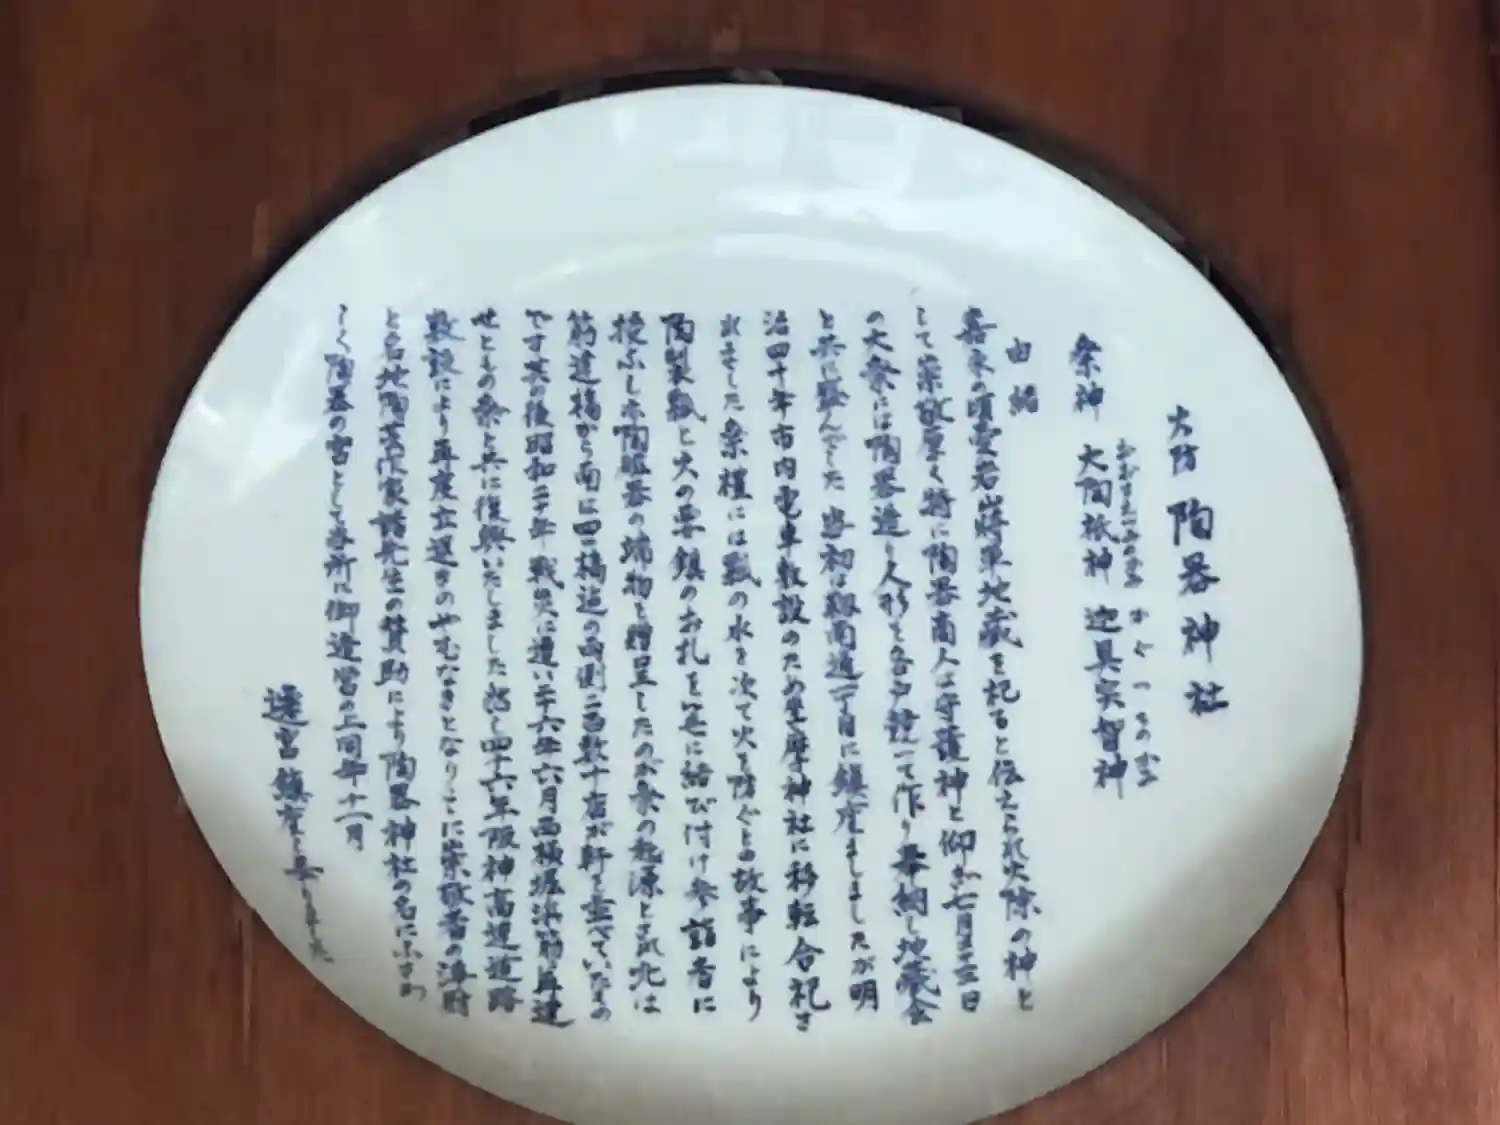 大阪 陶器神社
祭神 大陶祇神 迦具突智神
由緒
嘉永の頃愛宕山将軍地蔵を祀ると伝えられ火除の神と
して崇敬厚く特に陶器商人は守護神と仰ぎ七月二十三日
の大祭には陶器造り人形を各戸競って作り奉納し地蔵会
と共に賑んでした 当初は靱南通一丁目に鎮座ましましたが明
治四十年市内電車敷設のため坐摩神社に移転合祀さ
れました 祭壇には瓢の水を次て火を防ぐとの故事により
陶製瓢と火の要鎮のお札を笹に結び付け参詣者に
授ふし亦陶磁器の端物を贈呈したのが祭の起源とされ北は
筋違橋から南に四ツ橋迄の両側二百数十店が軒を並べていたもの
です 其の後昭和二十年戦災に遭い二十六年六月西横堀浜筋に再建
せともの祭と共に復興いたしました 然し四十六年阪神高速道路
敷設により再度立退きのやむなきとなりここに崇敬者の浄財
と各地陶芸作家諸先生の賛助により陶器神社の名にふさわ
しく陶器の宮として当所に御造営の上同年十一月
遷宮鎮座と相なりました